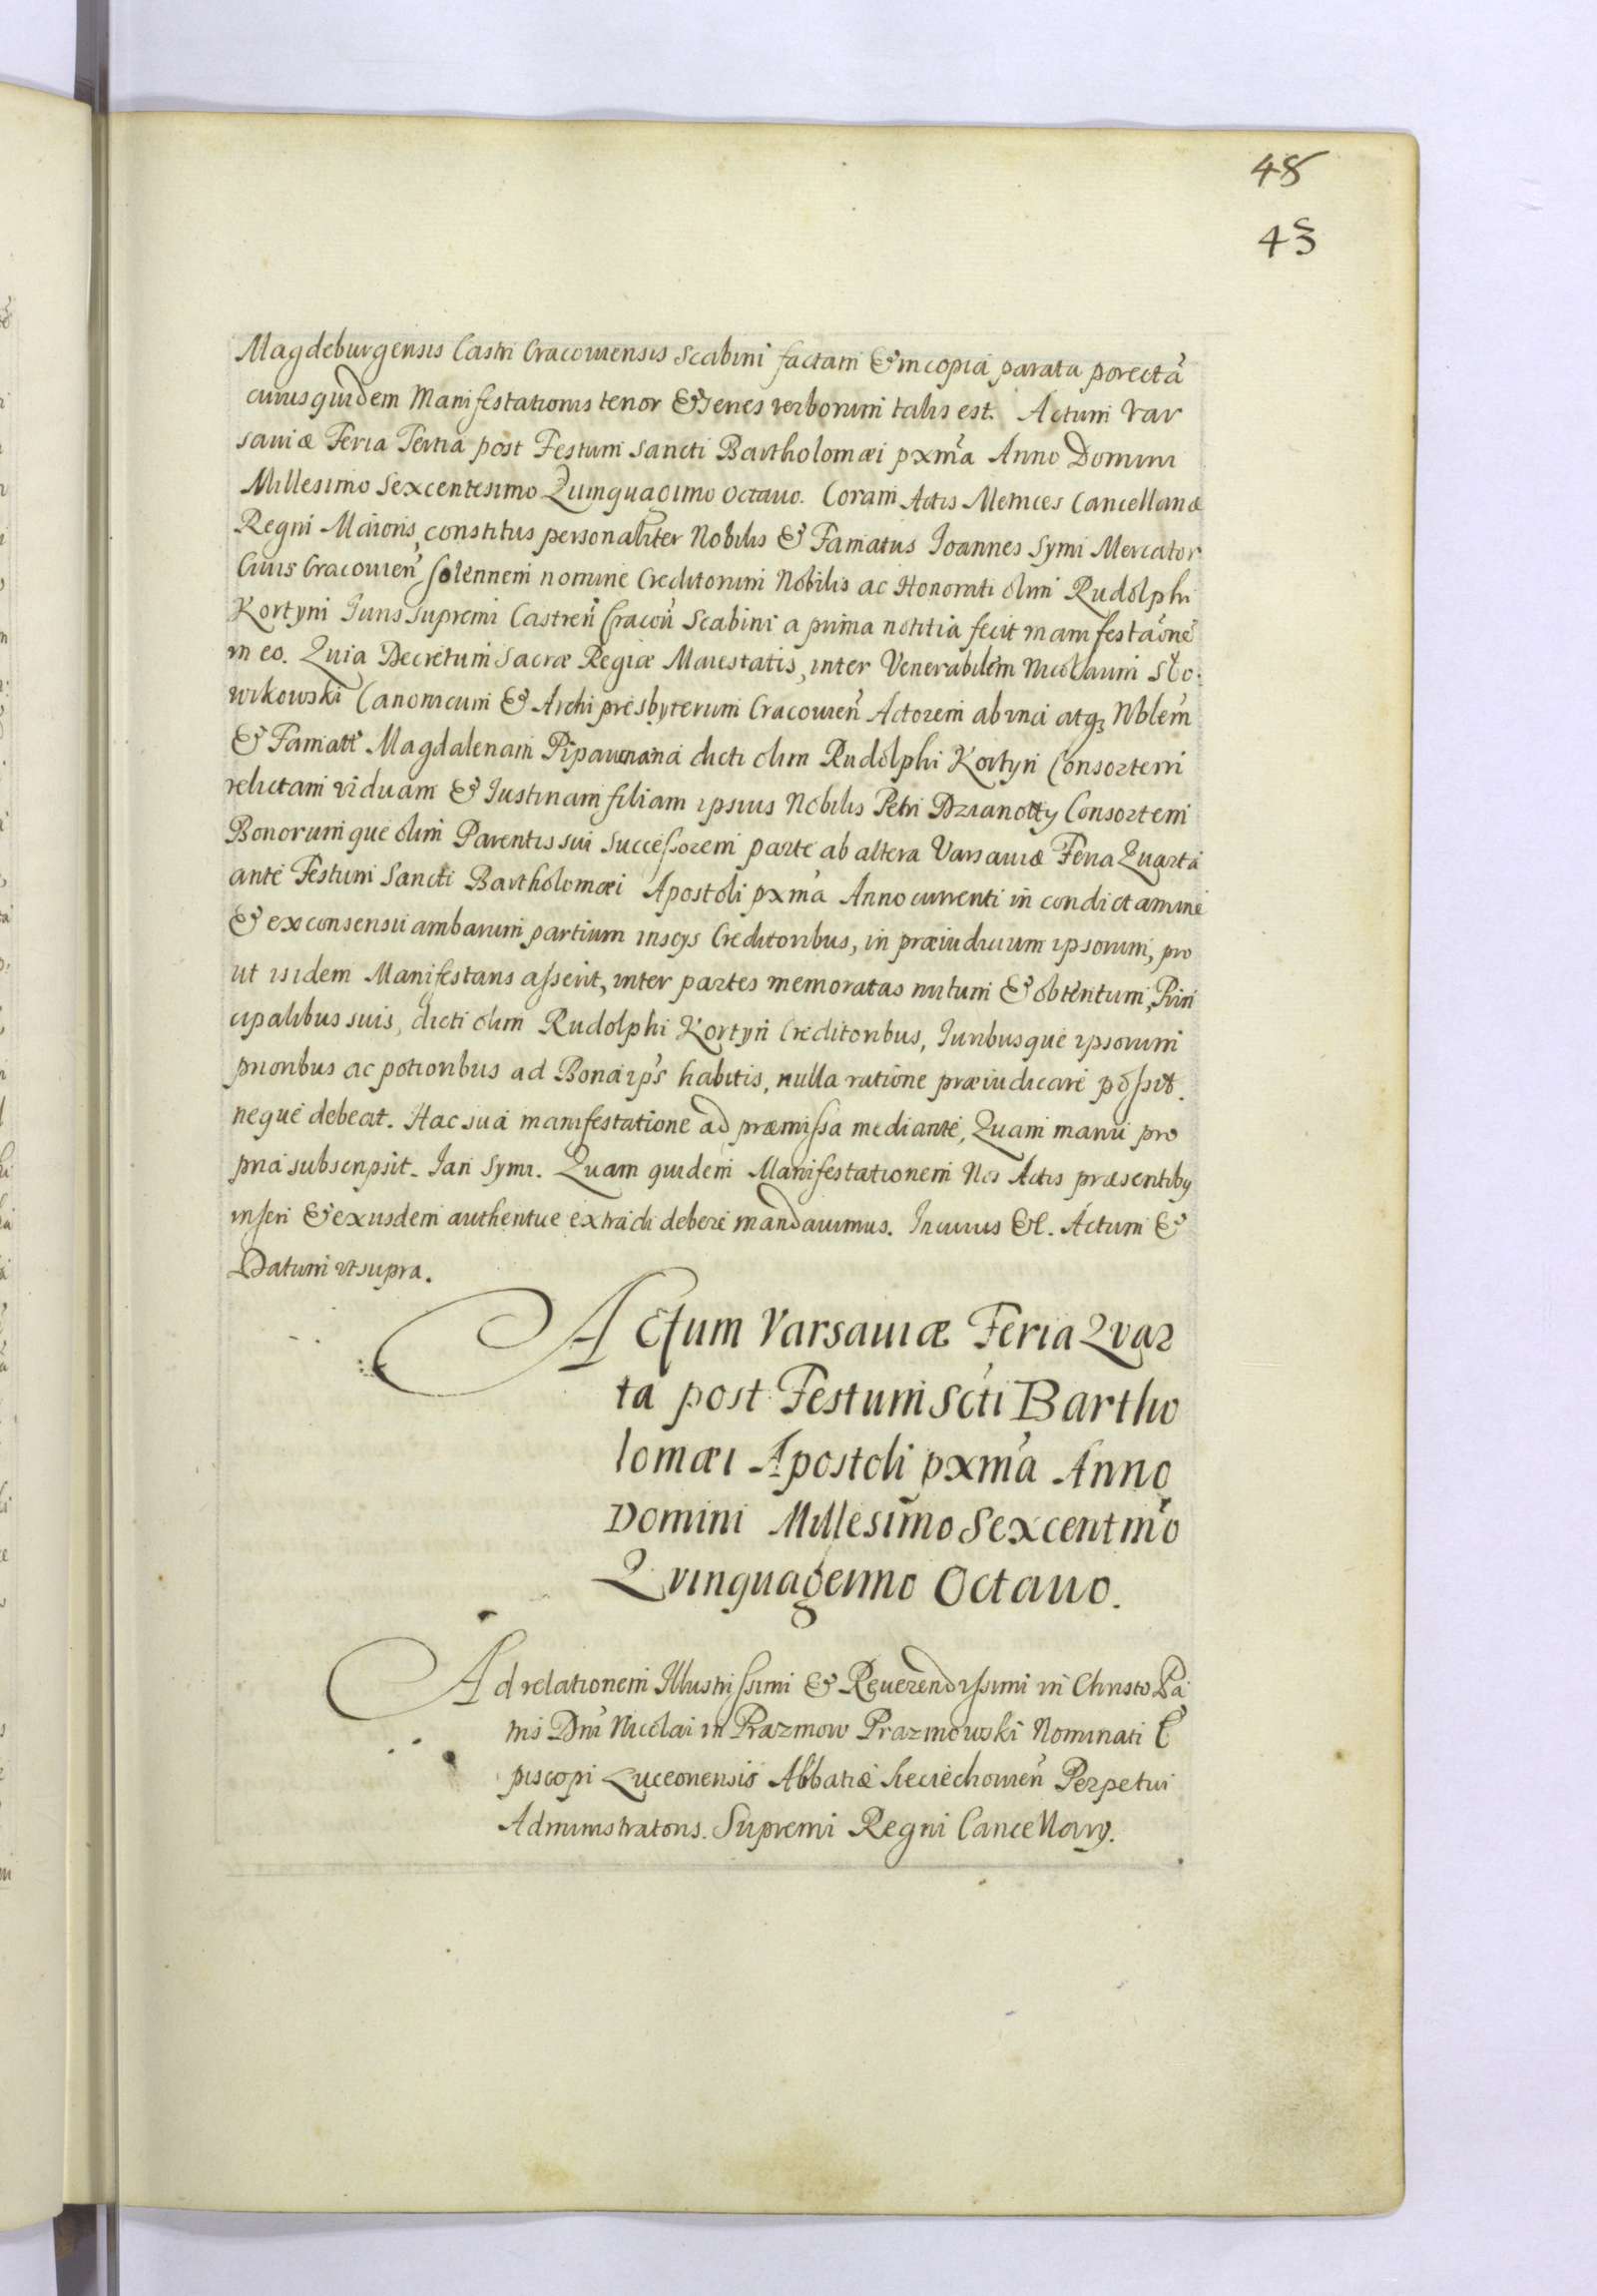 48
43
Magdeburgensis Castri Cracoviensis Scabini factam & in copia parata porectã
cuius quidem Manifestationis tenor & series verborum talis est. Actum Var
saviæ Feria Tertia post Festum Sancti Bartholomæi pxmã Anno Domini
Millesimo Sexcentesimo Quinquagimo Octavo. Coram Actis Metrices Cancellariæ
Regni Maioris, constitus personaliter Nobilis & Famatus Joannes Symi Mercator
Civis Cracovieñ solennem nomine Creditorum Nobilis ac Honorati olim Rudolphi
Kortyni Juris supremi Castreñ Cracoũ Scabini a prima notitia fecit manifestãonẽ
in eo. Quia Decretum Sacræ Regiæ Maiestatis, inter Venerabilem Nicolaum Slo:
wikowski Canonicum & Archipresbyterum Cracovieñ Actorem ab una atq3 Nblem̃
& Famatã Magdalenam dicti olim Rudolphi Kortyni Consortem
relictam viduam & Justinam filiam ipsius Nobilis Petri Dzianotty Consortem
Bonorumque olim Parentis sui Successorem parte ab altera Varsaviæ Feria Quarta
ante Festum Sancti Bartholomæi Apostoli pxmã Anno currenti in condictamine
& ex consensu ambarum partium inscys Creditoribus, in præiudicium ipsorum, pro
ut isidem Manifestans asserit, inter partes memoratas nutum & obtentum, Prin
cipalibus suis, dicti olim Rudolphi Kortyni Creditoribus, Juribusque ipsorum
prioribus ac potioribus ad Bona ips̃ habitis, nulla ratione præiudicari possit.
neque debeat. Hac sua manifestatione ad præmissa mediante, Quam manu pro
pria subscripsit. Jan Symi. Quam quidem Manifestationem Nos Actis præsentiby
inseri & exiisdem authentice extradi debere mandavimus. In cuius &c. Actum &
Datum ut supra.
Actum Varsaviæ Feria Qvar
ta post Festum Scti Bartho
lomæi Apostoli pxmã Anno
Domini Millesimo Sexcentmõ
Qvinquagemo Octavo.
Ad relationem Illustrissimi & Reverendissimi in Christo Pa
tris Dnĩ Nicolai in Prazmow Prazmowski Nominati E
piscopi Luceoriensis Abbatiæ Sieciechovieñ Perpetui
Administratoris. Supremi Regni Cancellary.